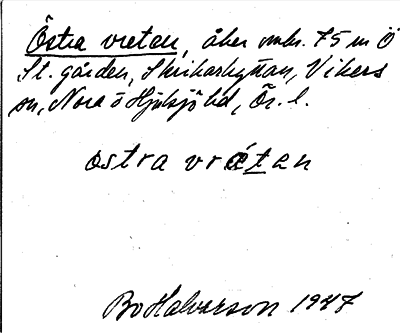 Östra vreten, åker omkr. 75 m Ö
St. gården, Skrikarhyttan, Vikers
sn, Nora o Hjulsjö bd, Ör. l.
ostra vrǽten
Bo Halvarson 1947